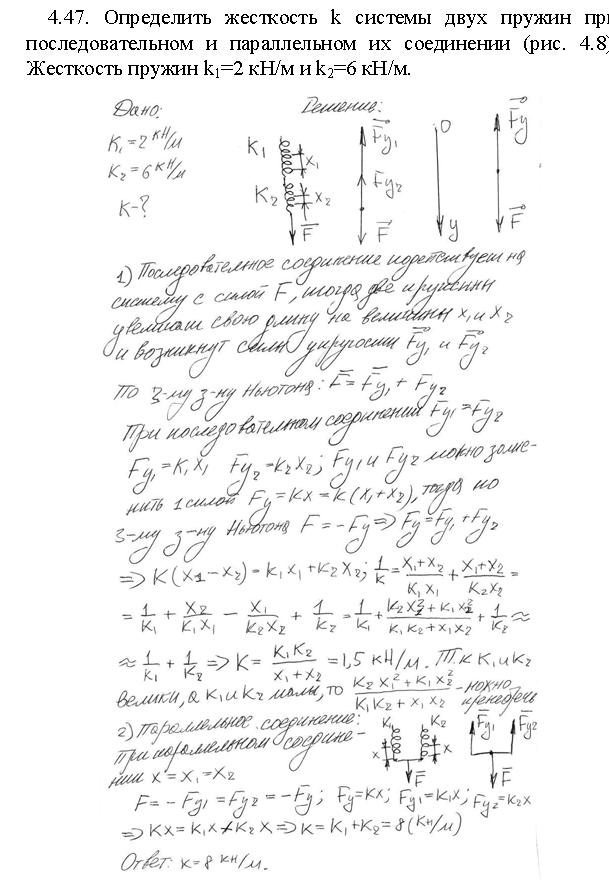 4.47. Определить жесткость k системы двух пружин при
последовательном и параллельном их соединении (рис. 4.8)
Жесткость пружин k₁=2 кН/м и k₂=6 кН/м.
Дано: Решение:
K₁=2 кН/м
K₂=6 кН/м
K-?
K₁ x₁ Fy₁ O Fy
K₂ x₂ Fy₂
F F y F
1) Последовательное соединение подействуем на
систему с силой F, тогда две пружины
увеличат свою длину на величины x₁ и x₂
и возникнут силы упругости Fy₁ и Fy₂
По 3-му з-ну Ньютона: F = Fy₁ + Fy₂
При последовательном соединении Fy₁ = Fy₂
Fy₁=K₁x₁ Fy₂=K₂x₂; Fy₁ и Fy₂ можно заме-
нить 1 силой Fy=Kx=K(x₁+x₂), тогда по
3-му з-ну Ньютона F=-Fy=>Fy=Fy₁+Fy₂
=> K(x₁-x₂)=K₁x₁+K₂x₂; 1/K = (x₁+x₂)/(K₁x₁) + (x₁+x₂)/(K₂x₂) =
= 1/K₁ + x₂/(K₁x₁) - x₁/(K₂x₂) + 1/K₂ = 1/K₁ + (K₂x₂²+K₁x₂²)/(K₁K₂+x₁x₂) + 1/K₂ ≈
≈ 1/K₁ + 1/K₂ => K = K₁K₂/(x₁+x₂) = 1,5 кН/м. Т.к K₁ и K₂
велики, а K₁ и K₂ малы, то (K₂x₁²+K₁x₂²)/(K₁K₂+x₁x₂) - можно пренебречь
2) Параллельное соединение: K₁ K₂ Fy₁ Fy₂
При параллельном соедине- x x
нии x=x₁=x₂ F F
F=-Fy₁=Fy₂=-Fy; Fy=Kx; Fy₁=K₁x; Fy₂=K₂x
=> Kx=K₁x+K₂x => K=K₁+K₂=8(кН/м)
Ответ: K=8 кН/м.